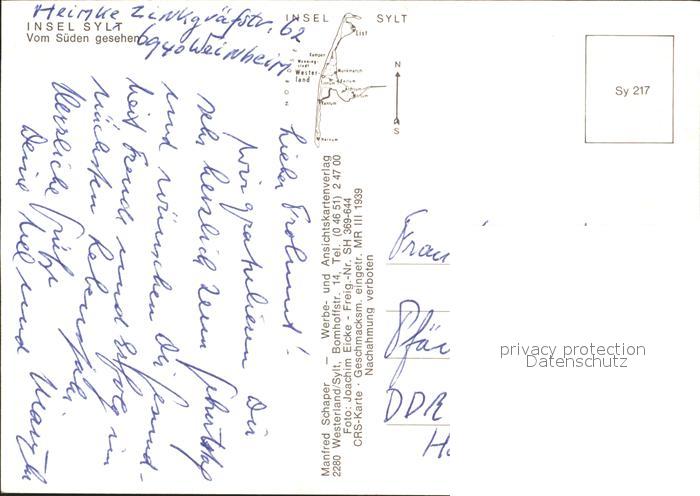 Heimke Zinkgräfstr. 62
6940 Weinheim
INSEL SYLT
Vom Süden gesehen
INSEL SYLT
List
Kampen
Wester-
land
Munkmarsch
Keitum
Rantum
Hörnum
N
S
Sy 217
Lieber Frohmut!
Wir gratulieren Dir
sehr herzlich zum Geburtstag
und wünschen Dir Gesund-
heit Freude und Erfolg im
nächsten Lebensjahr
Herzliche Grüße
Deine und
Manfred Schaper — Werbe- und Ansichtskartenverlag
2280 Westerland/Sylt, Bomhoffstr. 14, Tel. (0 46 51) 2 47 00
Foto: Joachim Eicke - Freig.-Nr. SH 369-644
CRS-Karte · Geschmacksm. eingetr. MR III 1939
Nachahmung verboten
Frau
DDR
privacy protection
Datenschutz